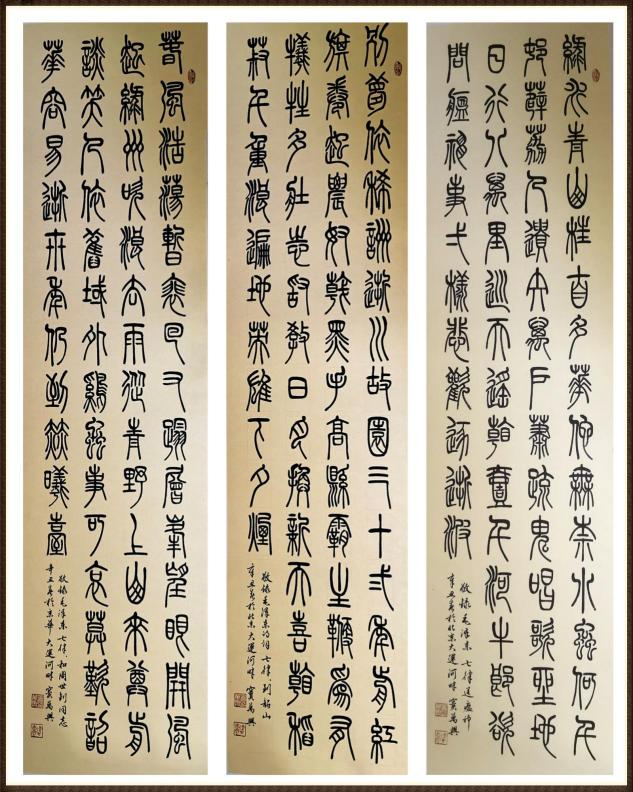 綠水青山枉自多華佗無奈小蟲何千
村薜荔人遺矢萬戶蕭疏鬼唱歌坐地
日行八萬里巡天遙看壹千河牛郎欲
問瘟神事弌樣悲歡逐逝波
敬錄毛澤東七律送瘟神
辛丑春於北京大運河畔 竇萬興
別夢依稀詛逝川故園三十弍年前紅
旗卷起農奴戟黑手高縣霸主鞭為有
犧牲多壯志敢教日月換新天喜看稻
菽千重浪遍地英雄下夕煙
敬錄毛澤東詩詞七律到韶山
辛丑春於北京大運河畔 竇萬興
春風浩蕩暫裵回又踏層峯望眼開風
起綠洲吹浪去雨從青野上山來尊前
談笑人依舊域外雞蟲事可哀莫歎韶
華容易逝卅年仍到赫曦臺
敬錄毛澤東七律和周世釗同志
辛丑春於京華大運河畔 竇萬興